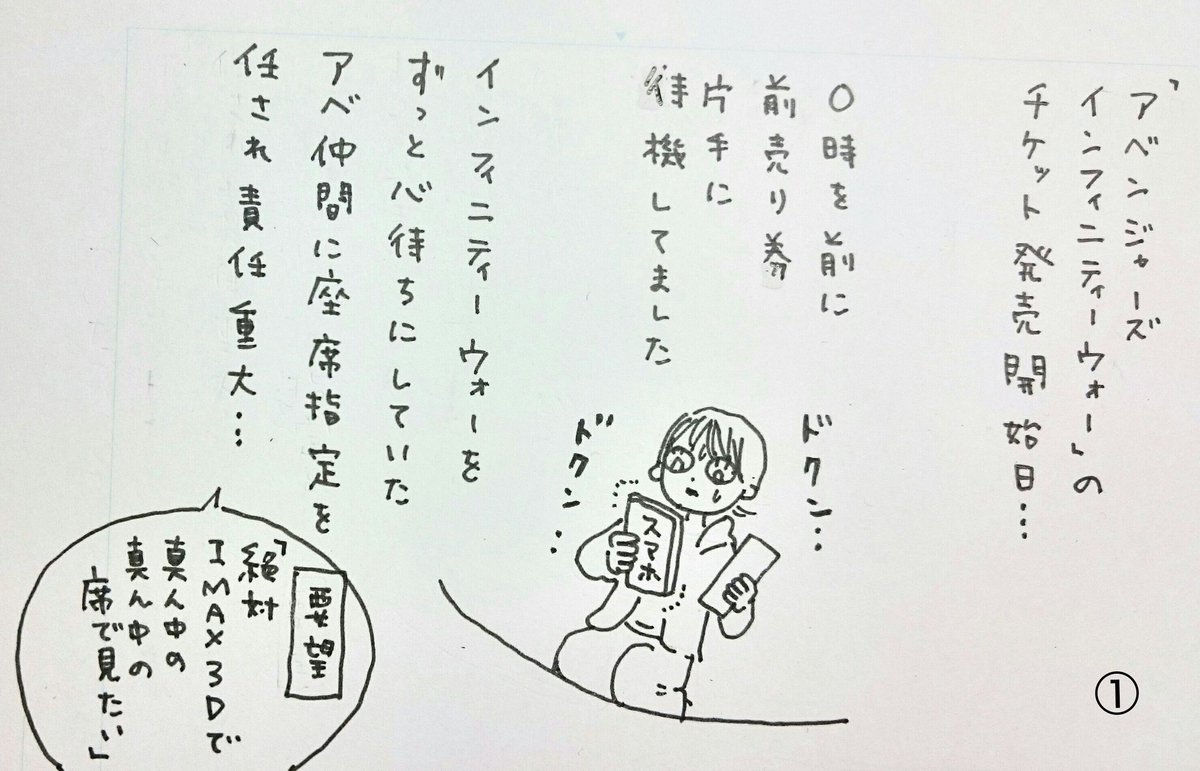 「アベンジャーズ
インフィニティーウォー」の
チケット発売開始日…
0時を前に
前売り券
片手に
待機してました
ドクン…
スマホ
ドクン…
インフィニティーウォーを
ずっと心待ちにしていた
アベ仲間に座席指定を
任され責任重大…
要望
「絶対
IMAX3Dで
真ん中の
真ん中の
席で見たい」
①